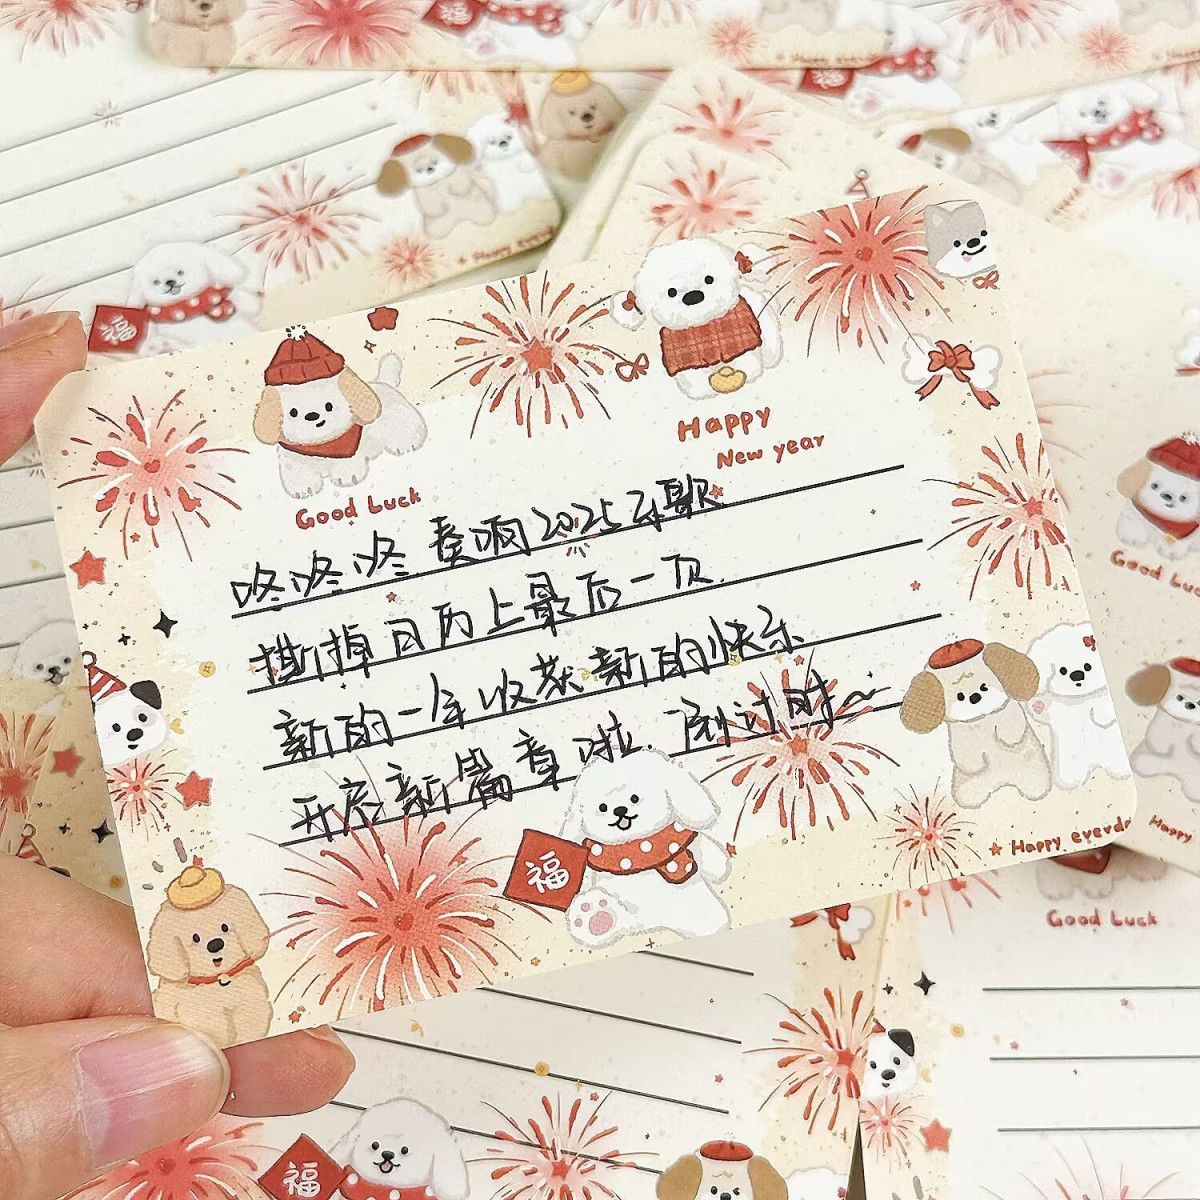 福
Happy everyd
福
Good Luck
Happy
New year
咚咚咚 奏响2025乐歌
撕掉日历上最后一页.
新的一年收获新的快乐
开启新篇章啦. 倒计时~
福
Happy everyd
Good Lu
Happy
Good Luck
福